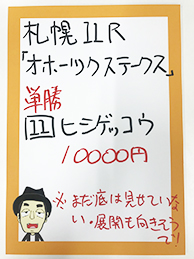 札幌11R
「オホーツクステークス」
単勝
11 ヒシゲッコウ
10000円
※まだ底は見せていな
い。展開も向きそう
で!!